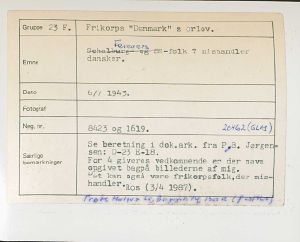 Gruppe 23 F. Frikorps "Danmark" s orlov.
Feriens
Schalburg- og SS-folk ? mishandler
Emne dansker.
Dato 6/7 1943.
Fotograf
Neg. nr. 8423 og 1619. 20462 (GLAS)
Særlige bemærkninger
Se beretning i dok.ark. fra P.B. Jørgen-
sen: D-23 E-18.
For 4 giveres vedkommende er der navn
opgivet bagpå billederne af mig.
Det kan også være frikorpsfolk, der mis-
handler. Ros (3/4 1987).